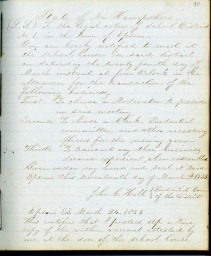 State of New Hampshire
To the legal voters of School District
No. 1 in the town of Epsom
You are hereby notified to meet at
the school house in said district
on Saturday the twenty fourth day of
March instant at five o'clock in the
afternoon for the transaction of the
following business,
First. To choose a Moderator to preside
in said meeting
Second. To choose a Clerk, Prudential
committee, and other necessary
officers for the ensuing year
Third. To transact any other business
deemed expedient when assembled
Given under my hand and seal at said
Epsom this seventeenth day of March 1855
John C. Hall Prudential Com
of the District
Epsom March 24, 1855
This certifies that I posted up a true
copy of the within warrant attested by
me, at the door of the school house